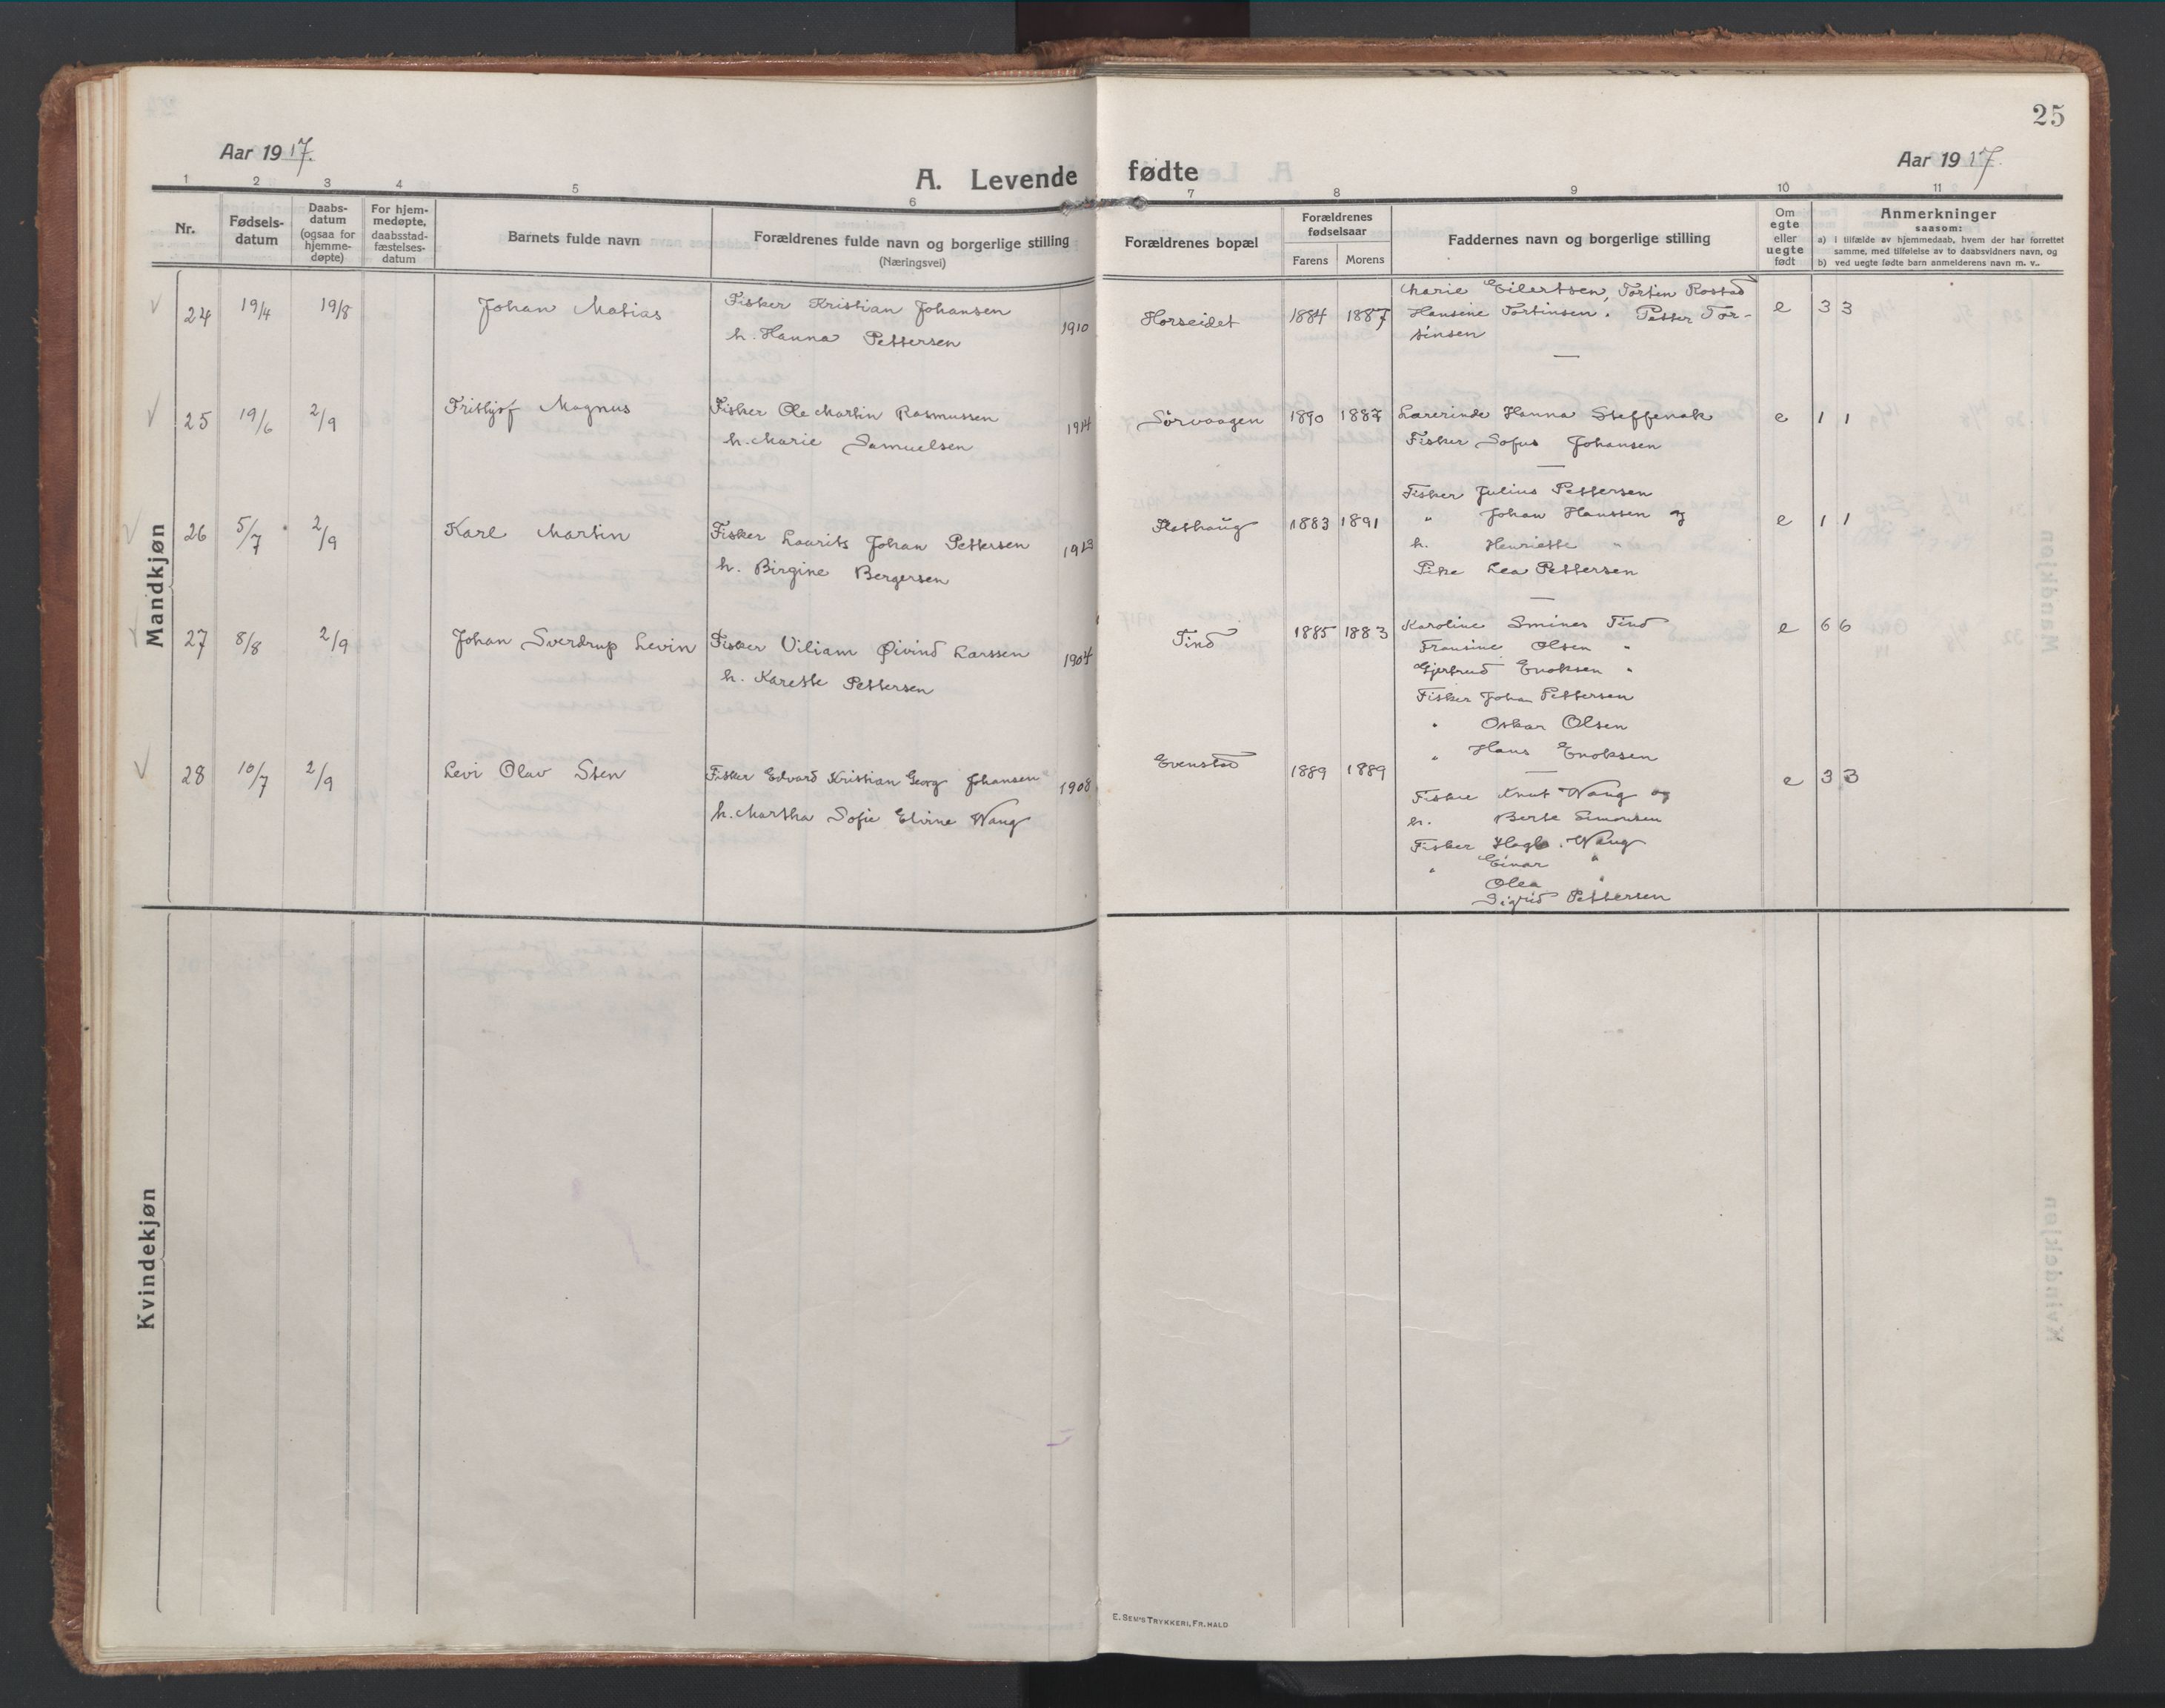 25
Aar 1917.
Aar 1917.
A. Levende fødte
1 2 3 4 5 6 7 8 9 10 11
Nr.
Fødsels-
datum
Daabs-
datum
(ogsaa for
hjemme-
døpte)
For hjem-
medøpte,
daabsstad-
fæstelses-
datum
Barnets fulde navn
Forældrenes fulde navn og borgerlige stilling
(Næringsvei)
Forældrenes bopæl
Forældrenes
fødselsaar
Farens Morens
Faddernes navn og borgerlige stilling
Om
egte
eller
uegte
født
Anmerkninger
saasom:
a) i tilfælde av hjemmedaab, hvem der har forrettet
samme, med tilføielse av to daabsvidners navn, og
b) ved uegte fødte barn anmelderens navn m. v..
Mandkjøn
24 19/4 19/8 Johan Matias
Fisker Kristian Johansen
h. Hanna Pettersen
1910
Horseidet 1884 1887
Marie Eilertsen, Tortin Rostad
Hansine Tortinsen. Petter Tor-
tinsen
e 3 3
25 19/6 2/9 Frithjof Magnus
Fisker Ole Martin Rasmussen
h. Marie Samuelsen
1914
Sörvaagen 1890 1887
Lærerinde Hanna Steffenak
Fisker Sofus Johansen
e 1 1
26 5/7 2/9 Karl Martin
Fisker Laurits Johan Pettersen
h. Birgine Bergersen
1913
Flathaug 1883 1891
Fisker Julius Pettersen
" Johan Hanssen og
h. Henriette "
Pike Lea Pettersen
e 1 1
27 8/8 2/9 Johan Sverdrup Levin
Fisker Viliam Øivind Larssen
h. Karette Pettersen
1904
Tind 1885 1883
Karoline Smines Tind
Fransine Olsen "
Gjertrud Enoksen "
Fisker Johan Pettersen
" Oskar Olsen
" Hans Enoksen
e 6 6
28 10/7 2/9 Levi Olav Sten
Fisker Edvard Kristian Georg Johansen
h. Martha Sofie Elvine Wang
1908
Evenstad 1889 1889
Fisker Knut Wang og
h. Berte Simonsen
Fisker Hagb. Wang
" Einar "
Olea "
Sigrid Pettersen
e 3 3
Kvindekjøn
E. SEM'S TRYKKERI, FR.HALD